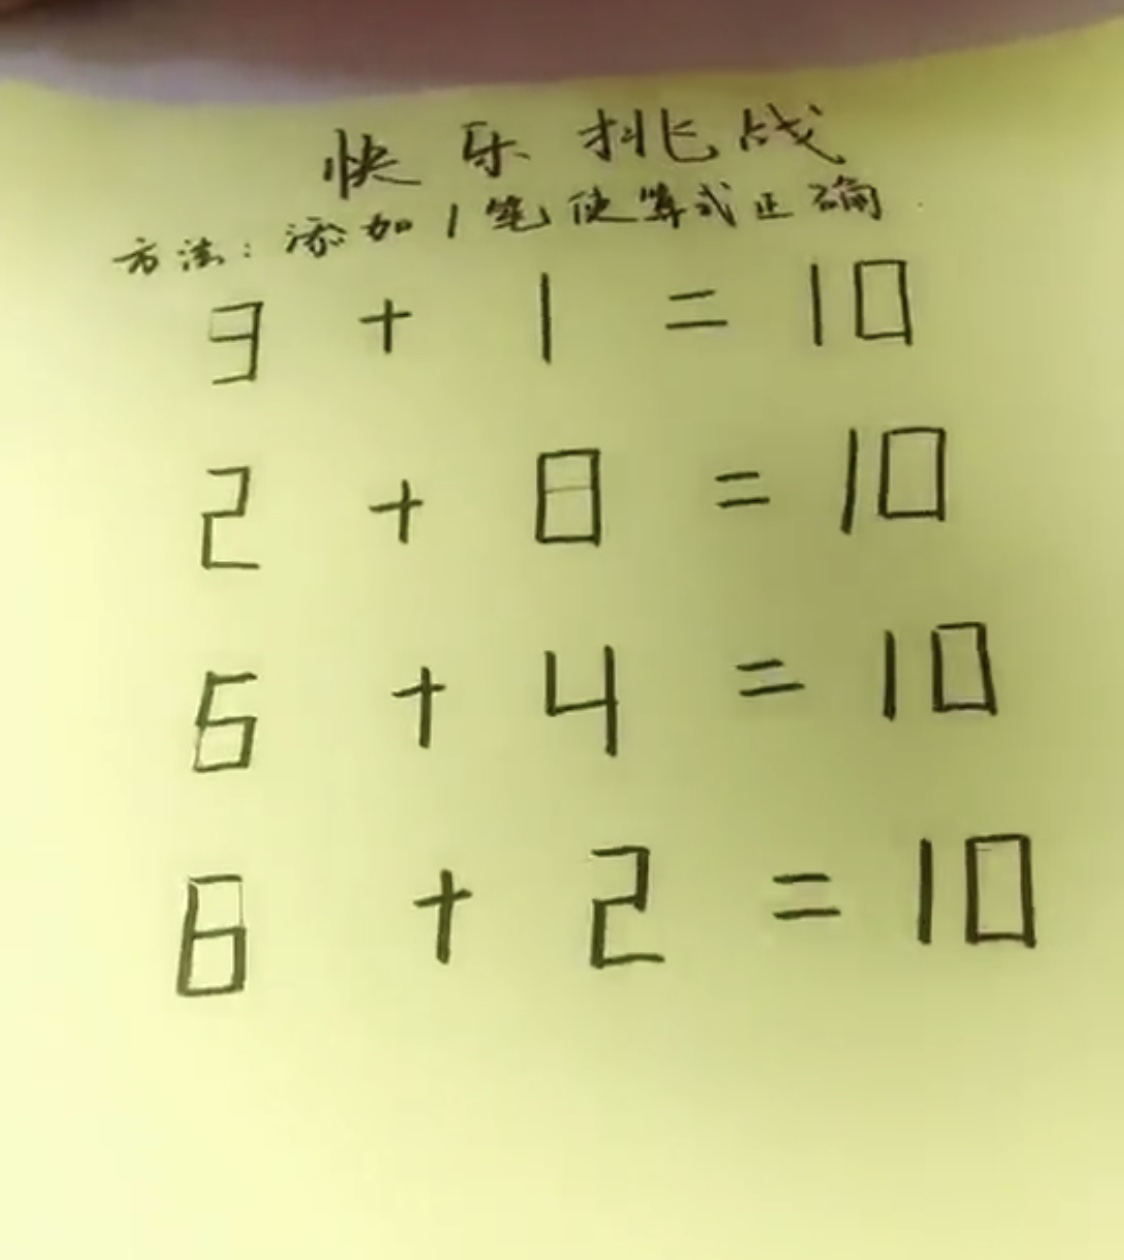 快乐挑战
方法：添加1笔使算式正确.
3 + 1 = 10
2 + 0 = 10
5 + 4 = 10
6 + 2 = 10